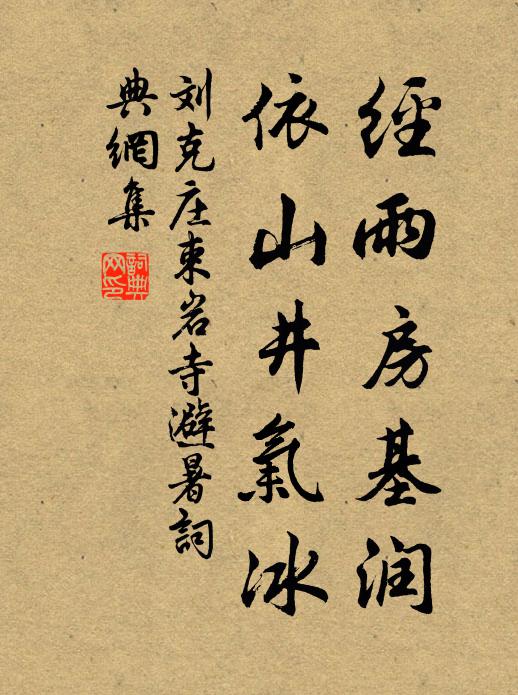 經雨房基润
依山井氣冰
刘克庄東岩寺避暑詞
典網集
詞典网印